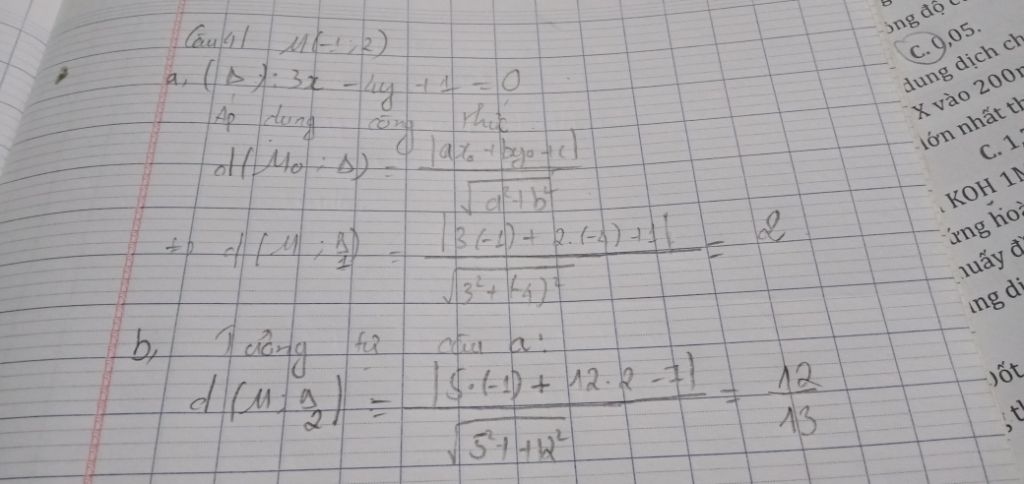 Câu 4/ M(-1; 2)
a, (Δ): 3x - 4y + 1 = 0
Áp dụng công thức
d(M₀; Δ) = |ax₀ + by₀ + c| / √(a² + b²)
=> d(M; Δ₁) = |3.(-1) + 2.(-4) + 1| / √(3² + (-4)²) = 2
b, Tương tự câu a:
d(M; Δ₂) = |5.(-1) + 12.2 - 7| / √(5² + 12²) = 12/13
ống độ c
C. 0,05.
dung dịch ch
X vào 200m
lớn nhất th
C. 1,
KOH 1M
ứng hoà
huấy đ
ng dị
ốt
; th